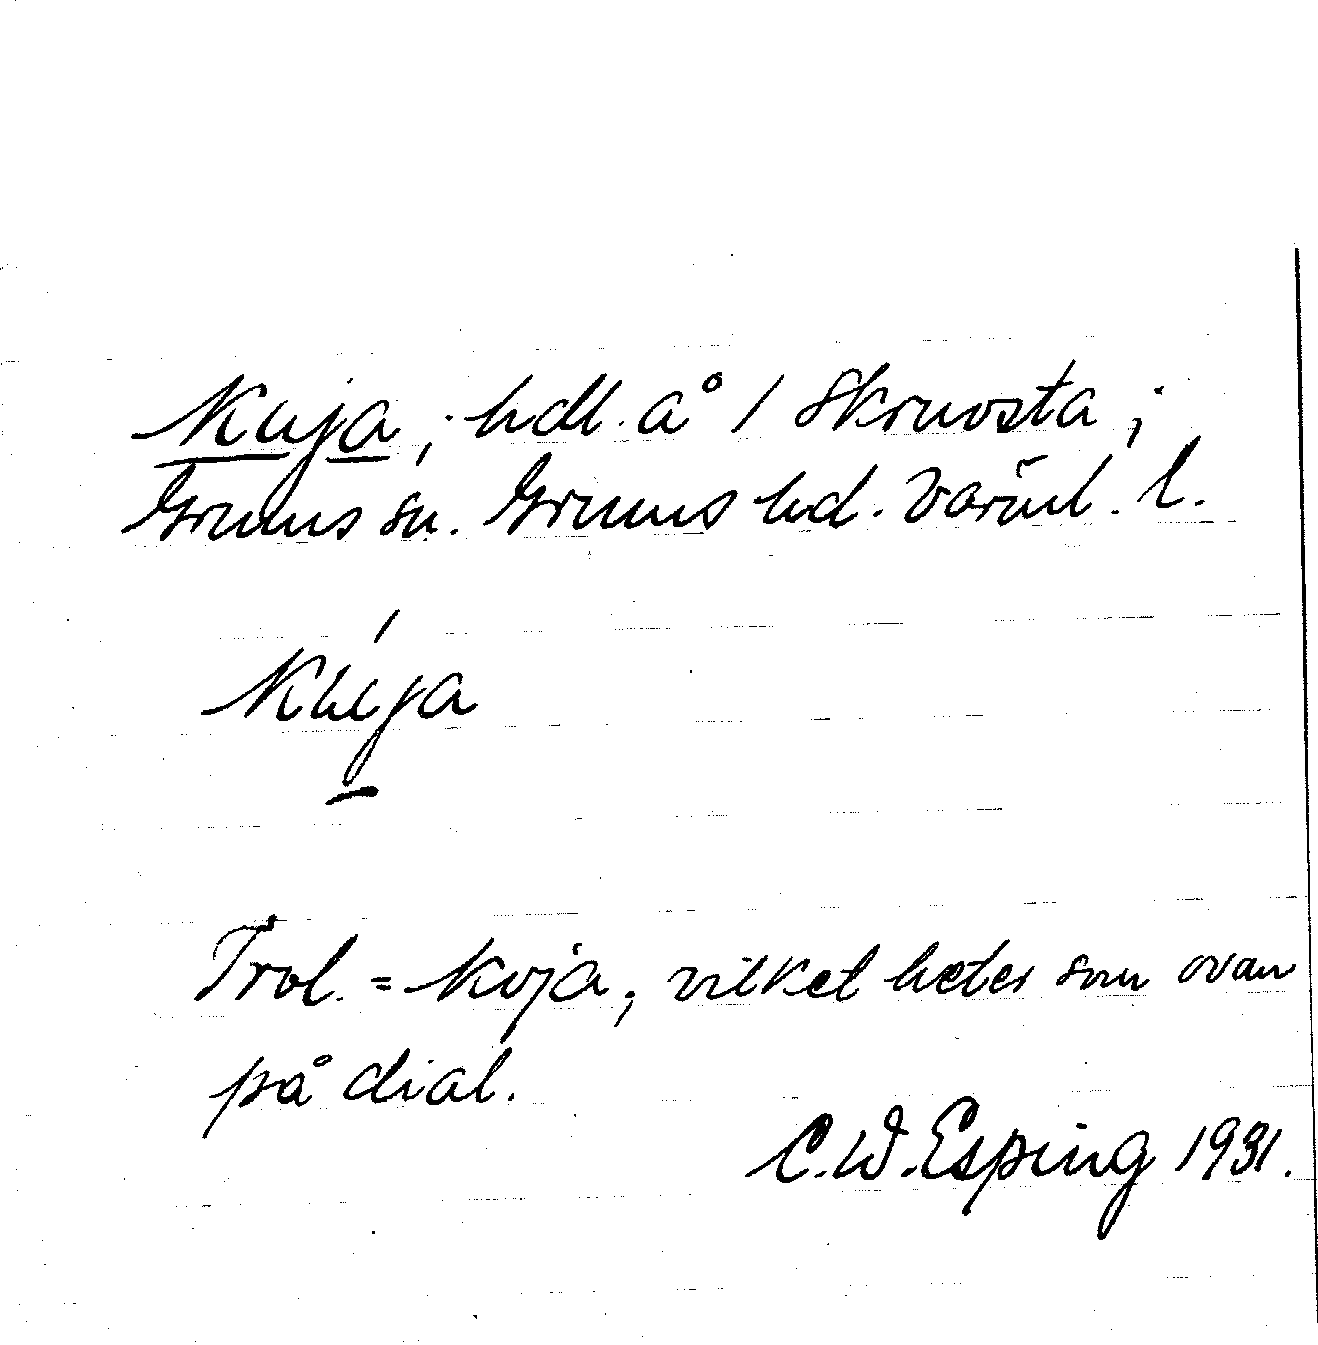 Kuja, hdl. å 1 Skruvsta;
Grums sn. Grums hd. Värml. l.
Kúja
Trol. = koja, vilket heter som ovan
på dial.
C.W. Esping 1931.